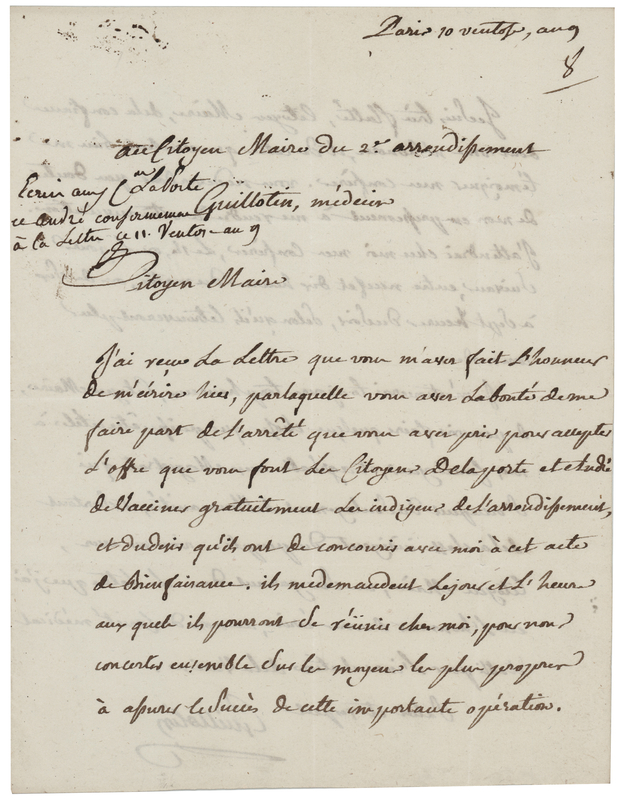 Paris 10 ventose, an 9
8
au Citoyen Maire du 2e. arrondissement
Guillotin, médecin
Ecrit aux Cens LaPorte
et andré conformement
à la Lettre ce 11. Ventose an 9
Citoyen Maire
J'ai reçu La Lettre que vous m'avez fait L'honneur
de m'écrire hier, par laquelle vous avez La bonté de me
faire part de L'arrêté que vous avez pris pour accepter
L'offre que vous font Les Citoyens Delaporte et andré
de Vacciner gratuitement Les indigens de L'arrondissement,
et du desir qu'ils ont de concourir avec moi à cet acte
de Bienfaisance. ils me demandent Le jour et L'heure
aux quels ils pourront Se réünir chez moi, pour nous
concerter ensemble Sur les moyens les plus propres
à assurer Le Succès de cette importante opération.